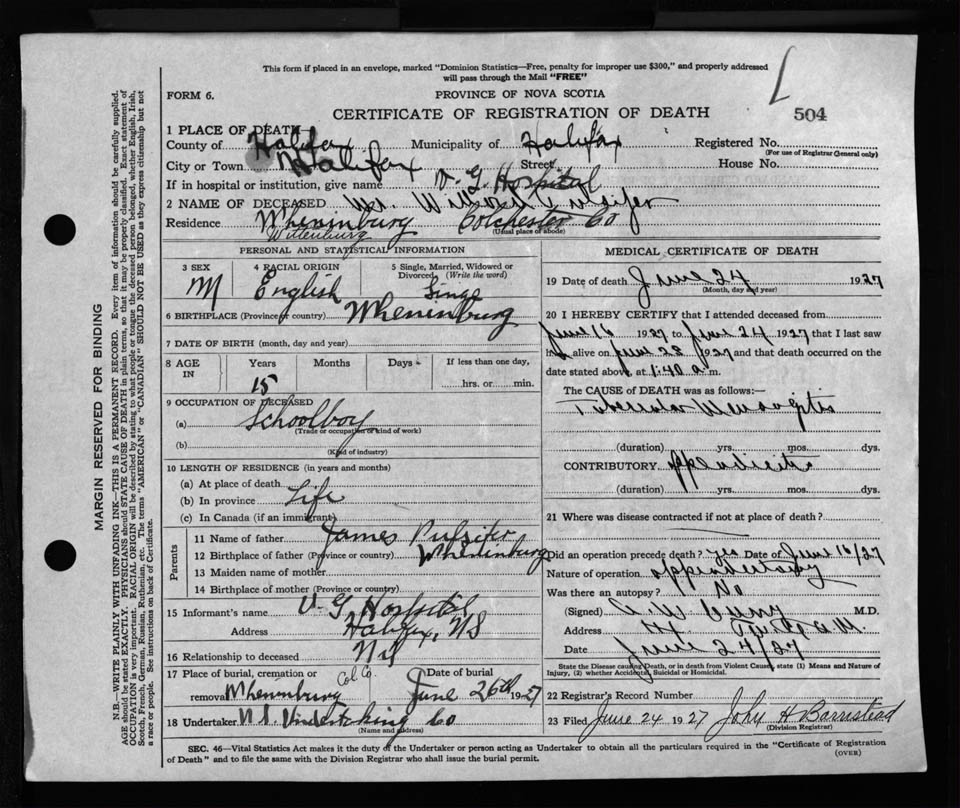 This form if placed in an envelope, marked "Dominion Statistics—Free, penalty for improper use $300," and properly addressed
will pass through the Mail "FREE"
FORM 6.
PROVINCE OF NOVA SCOTIA
CERTIFICATE OF REGISTRATION OF DEATH
504
1 PLACE OF DEATH
County of Halifax Municipality of Halifax Registered No.
(For use of Registrar General only)
City or Town Halifax Street House No.
If in hospital or institution, give name V-G Hospital
2 NAME OF DECEASED
Residence Whenenburg Colchester Co
(Usual place of abode)
Wittenburg
PERSONAL AND STATISTICAL INFORMATION
3 SEX 4 RACIAL ORIGIN 5 Single, Married, Widowed or Divorced (Write the word)
M English Single
6 BIRTHPLACE (Province or country) Whenenburg
7 DATE OF BIRTH (month, day and year)
8 AGE IN Years Months Days If less than one day,
15 hrs. or min.
9 OCCUPATION OF DECEASED
(a) Schoolboy
(Trade or occupation or kind of work)
(b)
(Kind of industry)
10 LENGTH OF RESIDENCE (in years and months)
(a) At place of death
(b) In province Life
(c) In Canada (if an immigrant)
Parents
11 Name of father James Pulsifer
12 Birthplace of father (Province or country) Whenenburg
13 Maiden name of mother
14 Birthplace of mother (Province or country)
15 Informant's name V-G Hospital
Address Halifax, NS
16 Relationship to deceased Nil
17 Place of burial, cremation or Date of burial
Col Co.
removal Whenenburg June 26th 1927
18 Undertaker N.S. Undertaking Co
(Name and address)
MEDICAL CERTIFICATE OF DEATH
19 Date of death June 24 1927
(Month, day and year)
20 I HEREBY CERTIFY that I attended deceased from
June 16 1927 to June 24 1927 that I last saw
h alive on June 23 1927 and that death occurred on the
date stated above, at 1:40 a.m.
The CAUSE OF DEATH was as follows:—
Tubercular Meningitis
(duration) yrs. mos. dys.
CONTRIBUTORY appendicitis
(duration) yrs. mos. dys.
21 Where was disease contracted if not at place of death?
Did an operation precede death? yes Date of June 16/27
Nature of operation appendectomy
Was there an autopsy? No
(Signed) M.D.
Address
Date June 24/27
State the Disease causing Death, or in death from Violent Causes, state (1) Means and Nature of
Injury, (2) whether Accidental, Suicidal or Homicidal.
22 Registrar's Record Number
23 Filed June 24 1927 John H Barrestead
(Division Registrar)
SEC. 46—Vital Statistics Act makes it the duty of the Undertaker or person acting as Undertaker to obtain all the particulars required in the "Certificate of Registration
of Death" and to file the same with the Division Registrar who shall issue the burial permit.
(OVER)
MARGIN RESERVED FOR BINDING
N.B.—WRITE PLAINLY WITH UNFADING INK—THIS IS A PERMANENT RECORD. Every item of information should be carefully supplied.
AGE should be stated EXACTLY. PHYSICIANS should STATE CAUSE OF DEATH in plain terms, so that it may be properly classified. Exact statement of
OCCUPATION is very important. RACIAL ORIGIN will be described by stating to what people or tongue the deceased person belonged, whether English, Irish,
Scotch, French, German, Russian, Ruthenian, etc. The terms "AMERICAN" or "CANADIAN" SHOULD NOT BE USED as they express citizenship but not
a race or people. See instructions on back of Certificate.